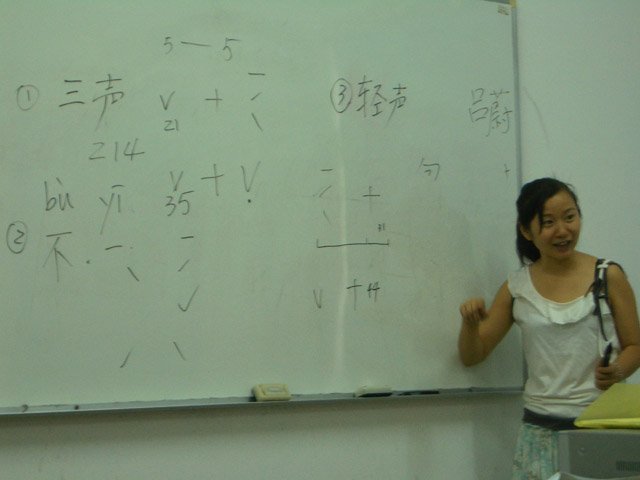 5 — 5
① 三声 ˇ + ˉ ˊ ˋ
21
214
ˇ + ˇ
35
② bù yī
不 · 一
ˋ ˉ ˊ ˇ
ˊ ˋ
③ 轻声
ˉ ˊ ˋ +
ˇ + 44
吕蔚